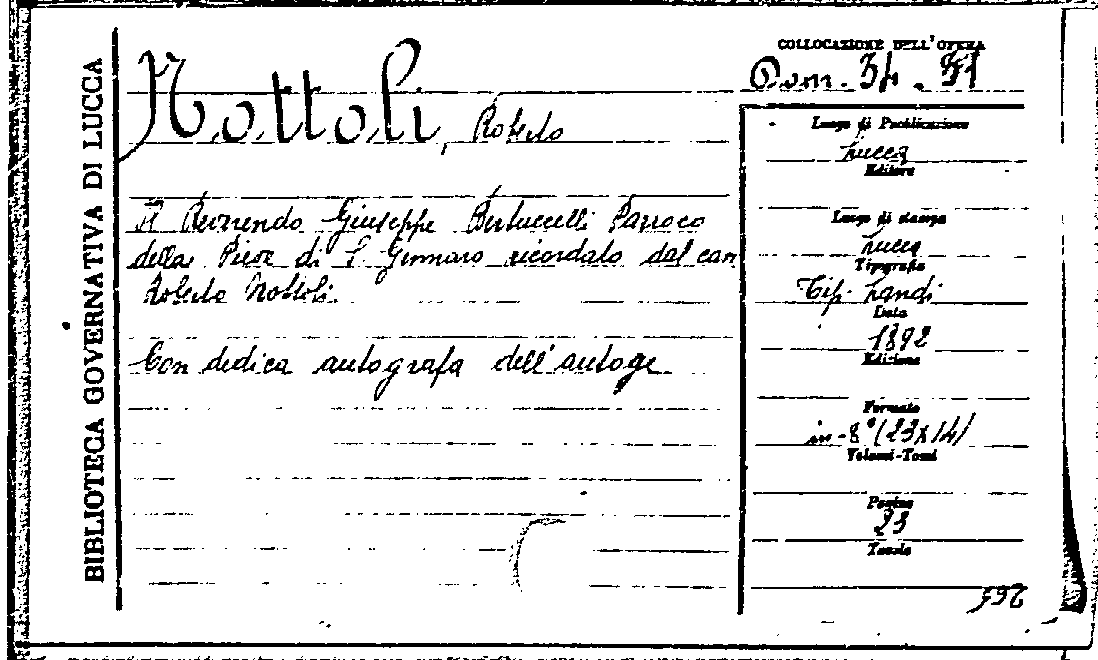 BIBLIOTECA GOVERNATIVA DI LUCCA
Nottoli, Roberto
Il Reverendo Giuseppe Bertuccelli Parroco
della Pieve di S. Gennaro ricordato dal can
Roberto Nottoli.
Con dedica autografa dell'autore
COLLOCAZIONE DELL'OPERA
Dom. 34.
Luogo di Pubblicazione
Lucca
Editore
Luogo di stampa
Lucca
Tipografia
Tip. Landi
Data
1892
Edizione
Formato
in-8° (23x14)
Volumi-Tomi
Pagine
23
Tavole